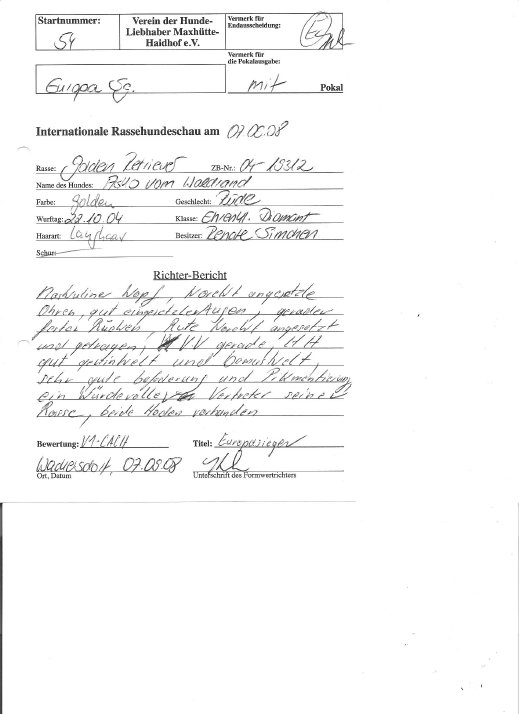 Startnummer:
54
Verein der Hunde-
Liebhaber Maxhütte-
Haidhof e.V.
Vermerk für
Endausscheidung:
Europa Sg.
Vermerk für
die Pokalausgabe:
mit Pokal
Internationale Rassehundeschau am
Rasse: Golden Retriever ZB-Nr.: 04-19312
Name des Hundes: vom Waldrand
Farbe: golden Geschlecht: Rüde
Wurftag: 22.10.04 Klasse: Ehrenkl. Diamant
Haarart: Langhaar Besitzer: Renate Simchen
Schur:
Richter-Bericht
Maskuliner Kopf, korrekt angesetzte
Ohren, gut eingesetzte Augen, gerader
fester Rücken, Rute korrekt angesetzt
und getragen, VV gerade, HH
gut gewinkelt und bemuskelt,
sehr gute befederung und Pikmentierung
ein Würdevoller Vertreter seiner
Rasse, beide Hoden vorhanden
Bewertung: V1-CACH Titel: Europasieger
Wackersdorf, 07.09.08
Ort, Datum Unterschrift des Formwertrichters